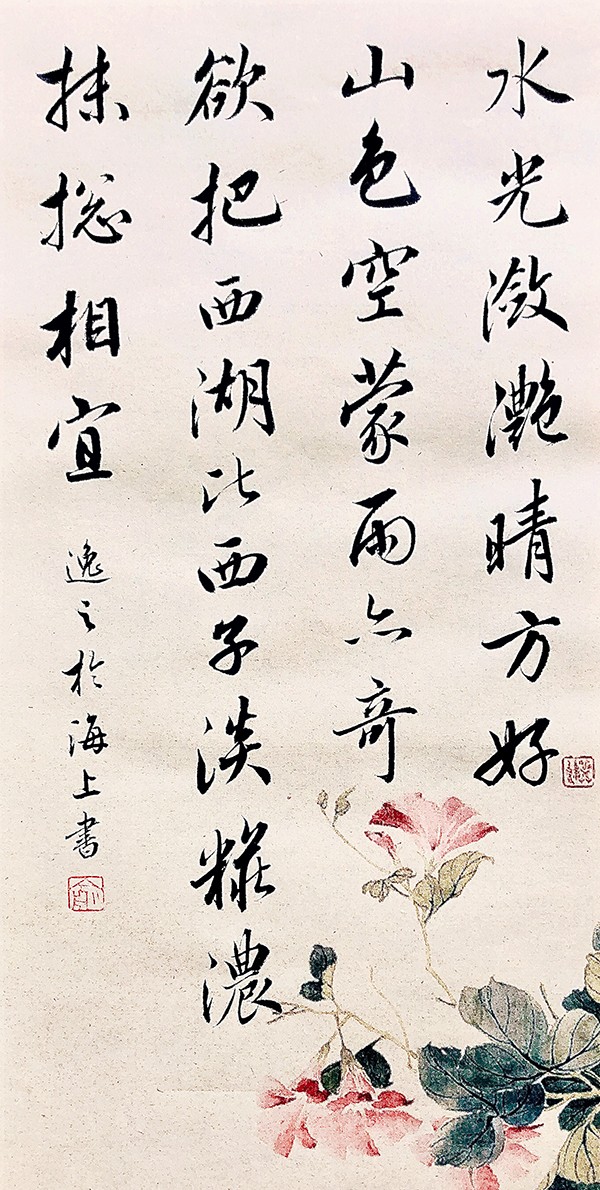 水光潋灧晴方好
山色空蒙雨亦竒
欲把西湖比西子淡糚濃
抹捴相宜
逸之於海上書